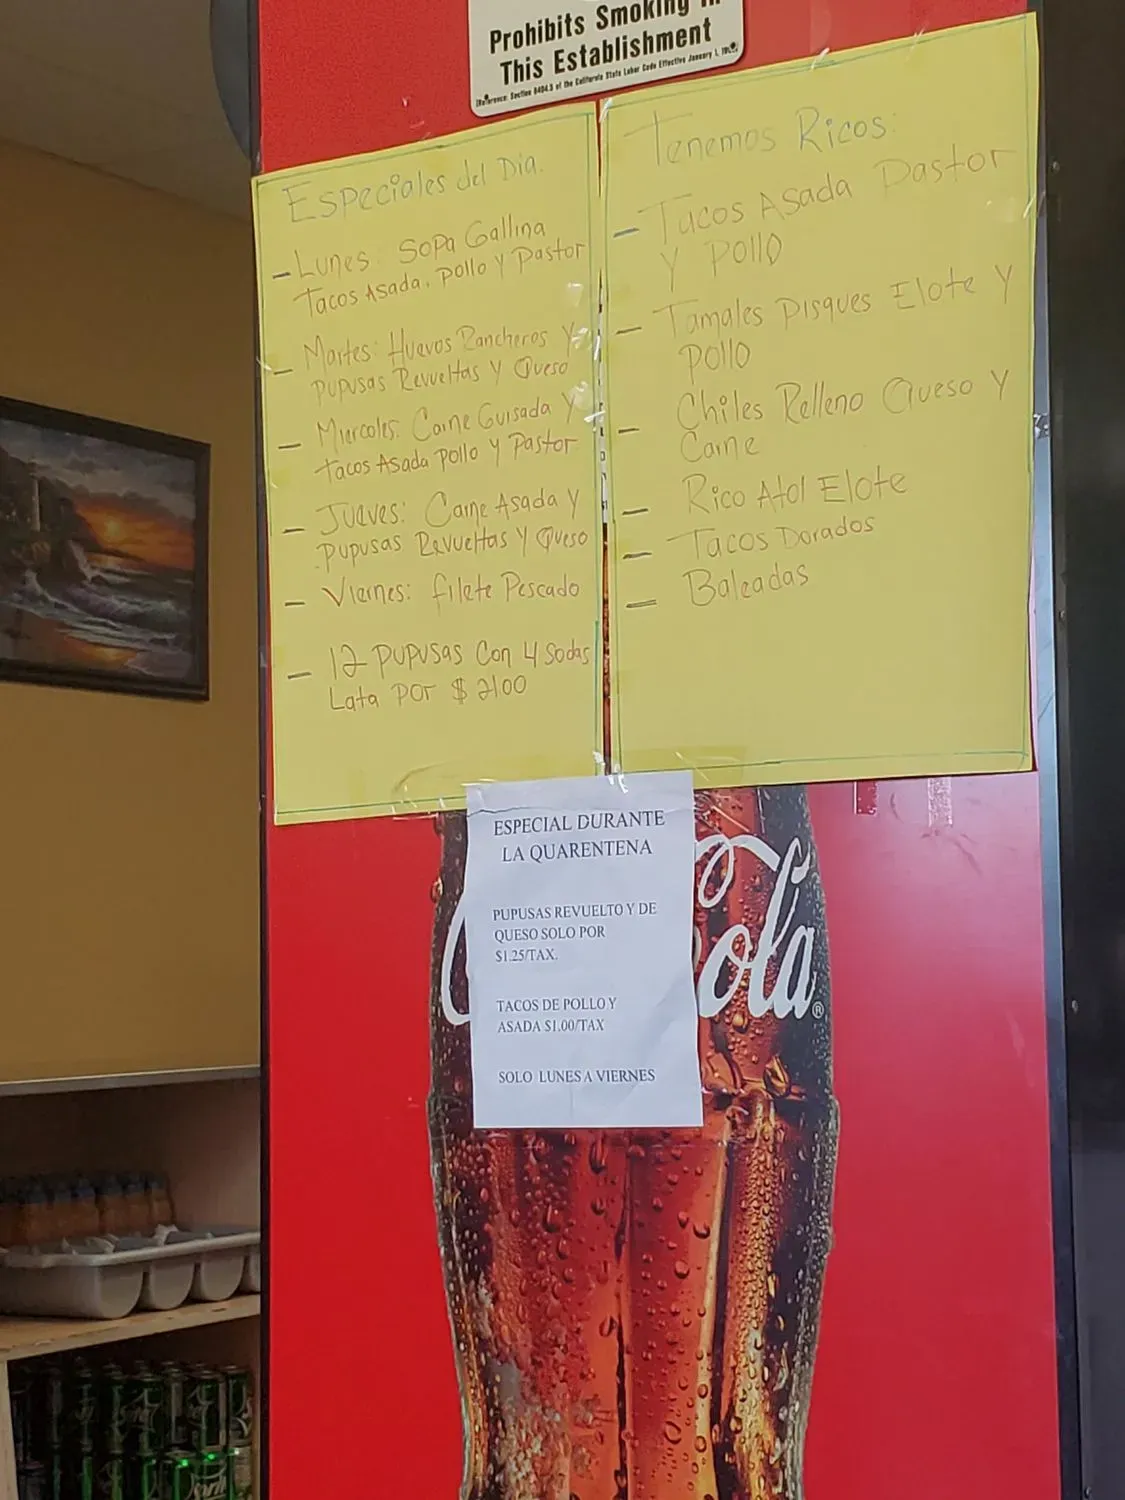 Prohibits Smoking in
This Establishment
Especiales del Dia.
- Lunes: Sopa Gallina
Tacos Asada, pollo y Pastor
- Martes: Huevos Rancheros Y
pupusas Revueltas Y Queso
- Miercoles: Carne Guisada Y
tacos Asada pollo y Pastor
- Jueves: Carne Asada y
pupusas Revueltas Y Queso
- Viernes: filete Pescado
- 12 pupusas Con 4 Sodas
Lata por $ 21.00
Tenemos Ricos:
- Tacos Asada Pastor
Y Pollo
- Tamales Pisques Elote Y
Pollo
- Chiles Relleno Queso Y
Carne
- Rico Atol Elote
- Tacos Dorados
- Baleadas
ESPECIAL DURANTE
LA QUARENTENA
PUPUSAS REVUELTO Y DE
QUESO SOLO POR
$1.25/TAX.
TACOS DE POLLO Y
ASADA $1.00/TAX
SOLO LUNES A VIERNES
ola®